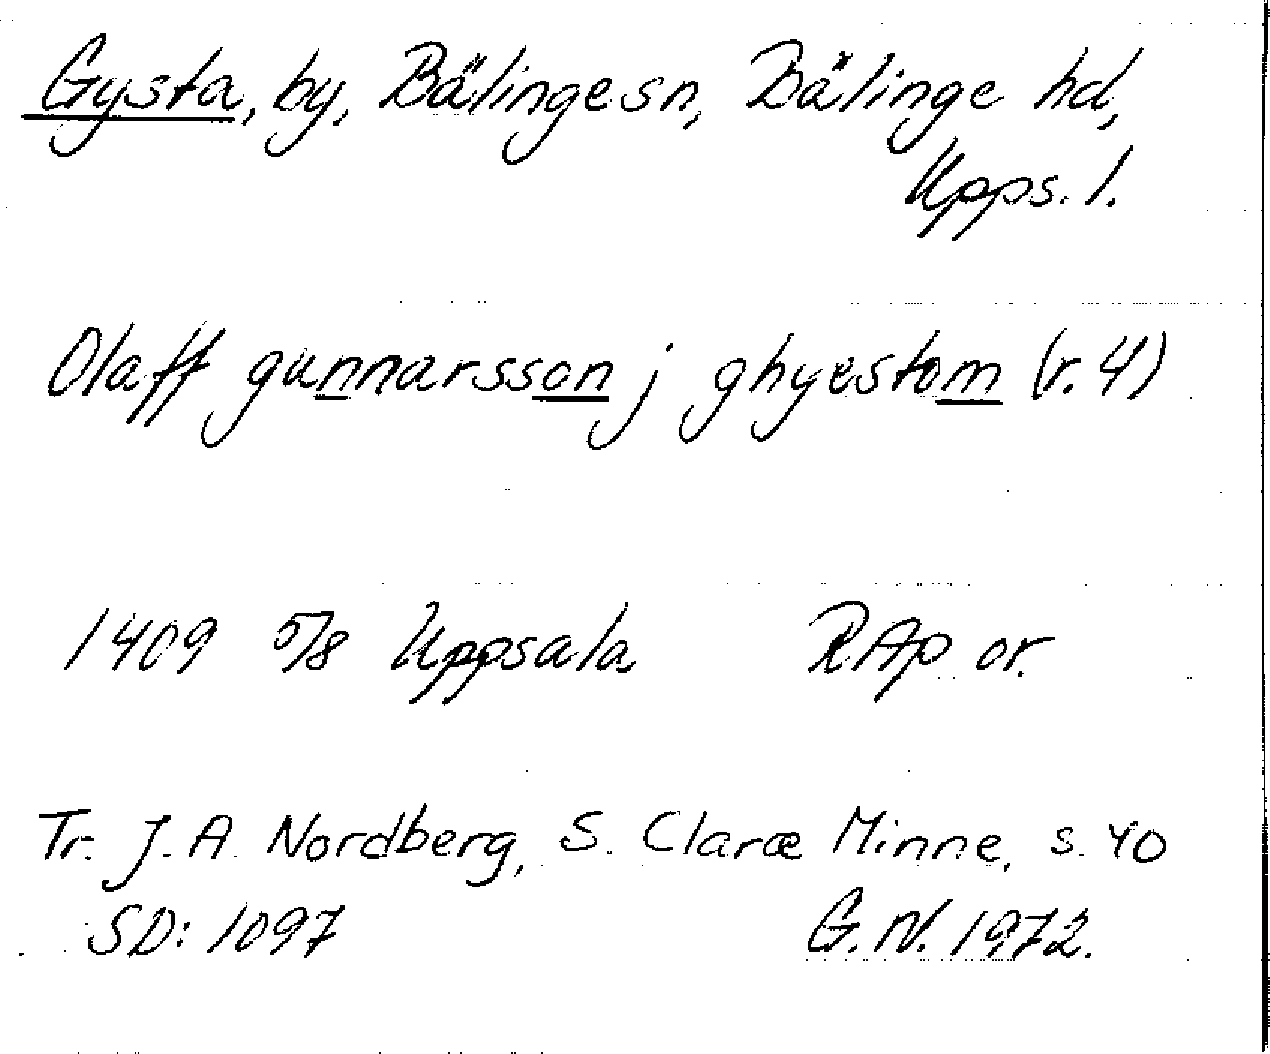 Gysta, by, Bälinge sn, Bälinge hd,
Upps. l.
Olaff gunnarsson j ghyestom (r. 4)
1409 5/8 Uppsala RAp or.
Tr. J. A. Nordberg, S. Claræ Minne, s. 40
SD: 1097 G. N. 1972.